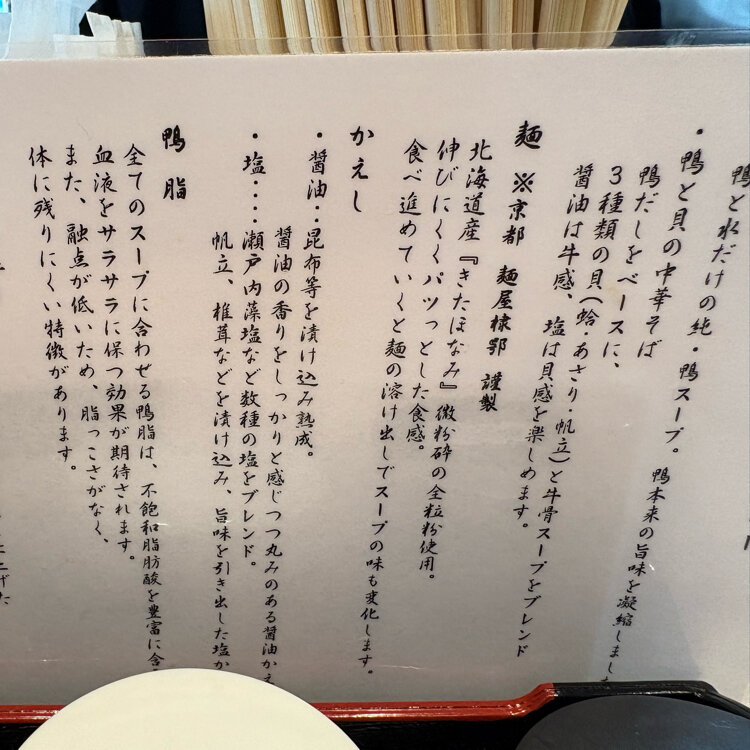 鴨と水だけの純・鴨スープ。 鴨本来の旨味を凝縮しまし
・鴨と貝の中華そば
鴨だしをベースに、
3種類の貝(蛤・あさり・帆立)と牛骨スープをブレンド
醤油は牛感、塩は貝感を楽しめます。
麺 ※京都 麺屋棣鄂 謹製
北海道産『きたほなみ』微粉砕の全粒粉使用。
伸びにくくパツっとした食感。
食べ進めていくと麺の溶け出しでスープの味も変化します。
かえし
・醤油‥昆布等を漬け込み熟成。
醤油の香りをしっかりと感じつつ丸みのある醤油かえ
・塩‥‥瀬戸内藻塩など数種の塩をブレンド。
帆立、椎茸などを漬け込み、旨味を引き出した塩か
鴨脂
全てのスープに合わせる鴨脂は、不飽和脂肪酸を豊富に含
血液をサラサラに保つ効果が期待されます。
また、融点が低いため、脂っこさがなく、
体に残りにくい特徴があります。